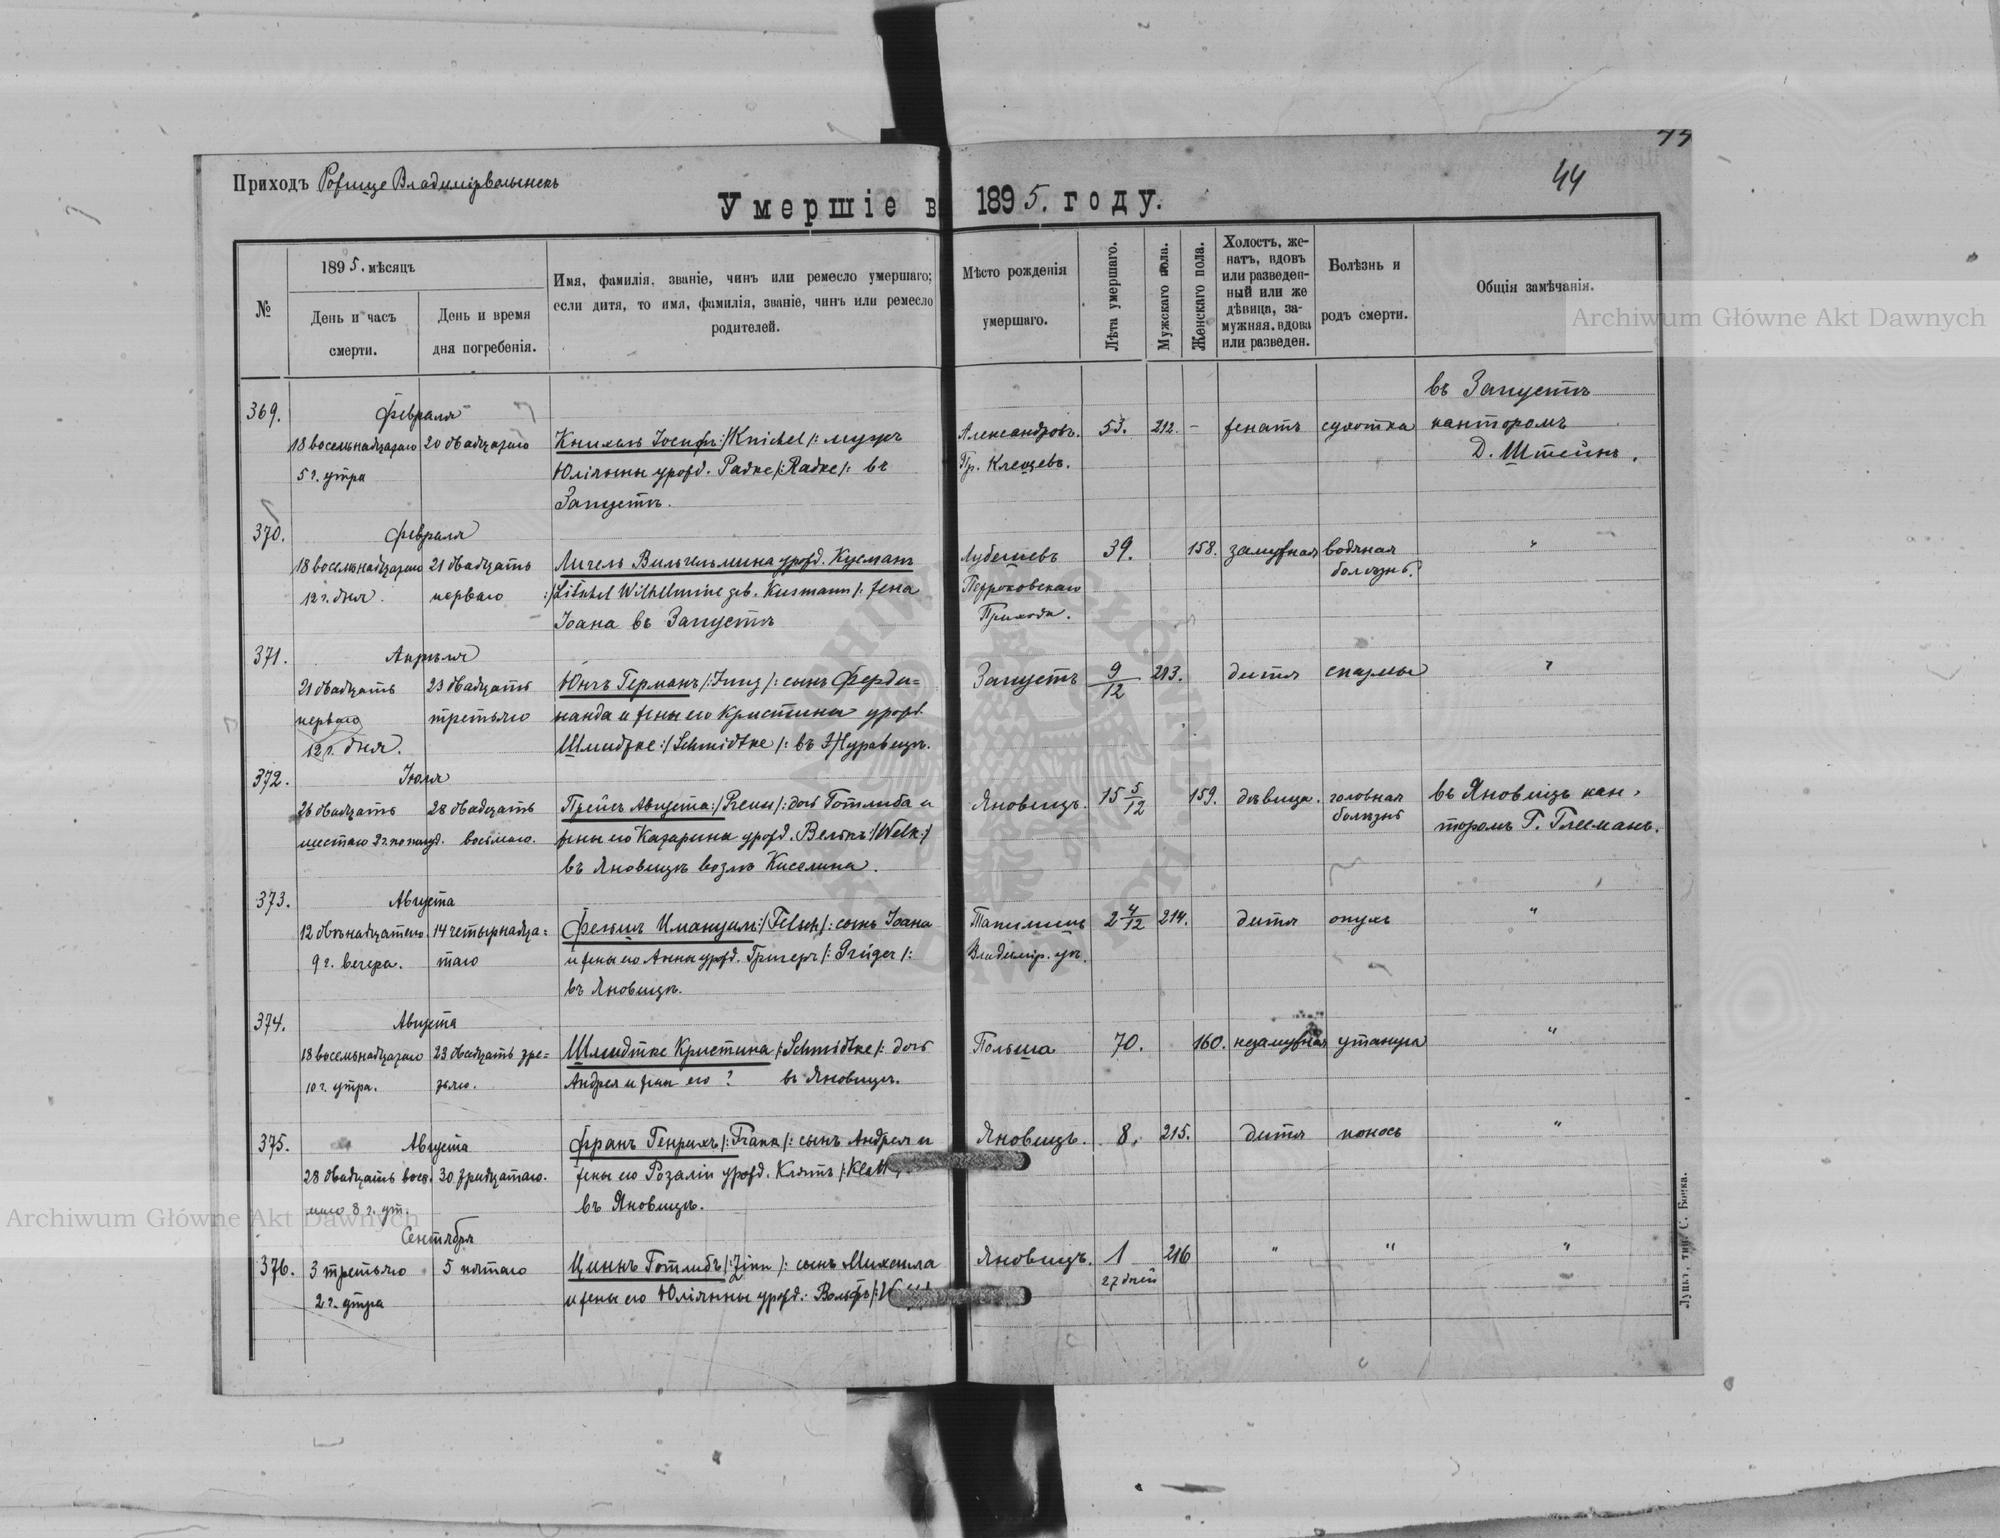 44
Приходъ Рожище Владимірволынскъ
Умершіе въ 1895. году.
№
1895. мѣсяцъ
День и часъ смерти.
День и время дня погребенія.
Имя, фамилія, званіе, чинъ или ремесло умершаго; если дитя, то имя, фамилія, званіе, чинъ или ремесло родителей.
Мѣсто рожденія умершаго.
Лѣта умершаго.
Мужскаго пола.
Женскаго пола.
Холостъ, женатъ, вдовъ или разведенный или же дѣвица, замужняя, вдова или разведен.
Болѣзнь и родъ смерти.
Общія замѣчанія.
Archiwum Główne Akt Dawnych
въ Запустѣ
369. Февраля
18 восемнадцатаго 20 двадцатаго Книхель Іосифъ :/Knichel/: мужъ Александров. 53. 212. – женатъ сухотка канторомъ
5 г. утра Юліянны урожд. Радке /:Radke/: въ Гр. Клещевъ. Д. Штейнъ.
Запустѣ.
370. Февраля
18 восемнадцатаго 21 двадцать Вильгельмина урожд. Кусманъ 39. 158. замужняя водяная "
12 г. дня. перваго Wilhelmine geb. Kusmann /: жена болѣзнь.
Іоана въ Запустѣ Прихода.
371. Апрѣля
21 двадцать 23 двадцать Юнгъ Германъ /:Jung/: сынъ Ферди= Запустъ 9/12 213. дитя спазмы "
перваго третьяго нанда и жены его Кристина урожд.
12 г. дня. Шмидтке :/Schmidtke/: въ Журавецъ.
372. Іюля
26 двадцать 28 двадцать Прейсъ Августа :/Preuss/: дочь Готлиба и Яновецъ. 15 5/12 159. дѣвица. головная болѣзнь въ Яновецъ кан-
шестаго 2 г. по полуд. восьмаго. жены его Катарина урожд. Велькъ :/Welk:/ торомъ Г. Глеманъ.
въ Яновецъ возлѣ Киселина.
373. Августа
12 двѣнадцатаго 14 четырнадца= Имануилъ :/Felsch/: сынъ Іоана 2 4/12 214. дитя опухъ "
9 г. вечера. таго и жены его Анны урожд. Григеръ /:Grüger/: Владимір. уѣ.
въ Яновецъ.
374. Августа
18 восемнадцатаго 23 двадцать тре= Шмидтке Кристина /:Schmidtke/: дочь Польша 70. 160. незамужная утонула "
10 г. утра. тьяго. Андрея и жены его ? въ Яновецъ.
375. Августа
28 двадцать вось 30 тридцатаго. Франъ Генрихъ /:Frank/: сынъ Андрея и Яновецъ. 8. 215. дитя поносъ "
маго 8 г. ут. жены его Розаліи урожд. Клятъ /:Klatt
въ Яновецъ.
Сентября
376. 3 третьяго 5 пятаго Циннъ Готлибъ /:Zinn/: сынъ Михаила Яновецъ. 1 216 " " "
2 г. утра и жены его Юліянны урожд. Вольфъ 27 дней
Archiwum Główne Akt Dawnych
Луцкъ, тип. С. Бонка.